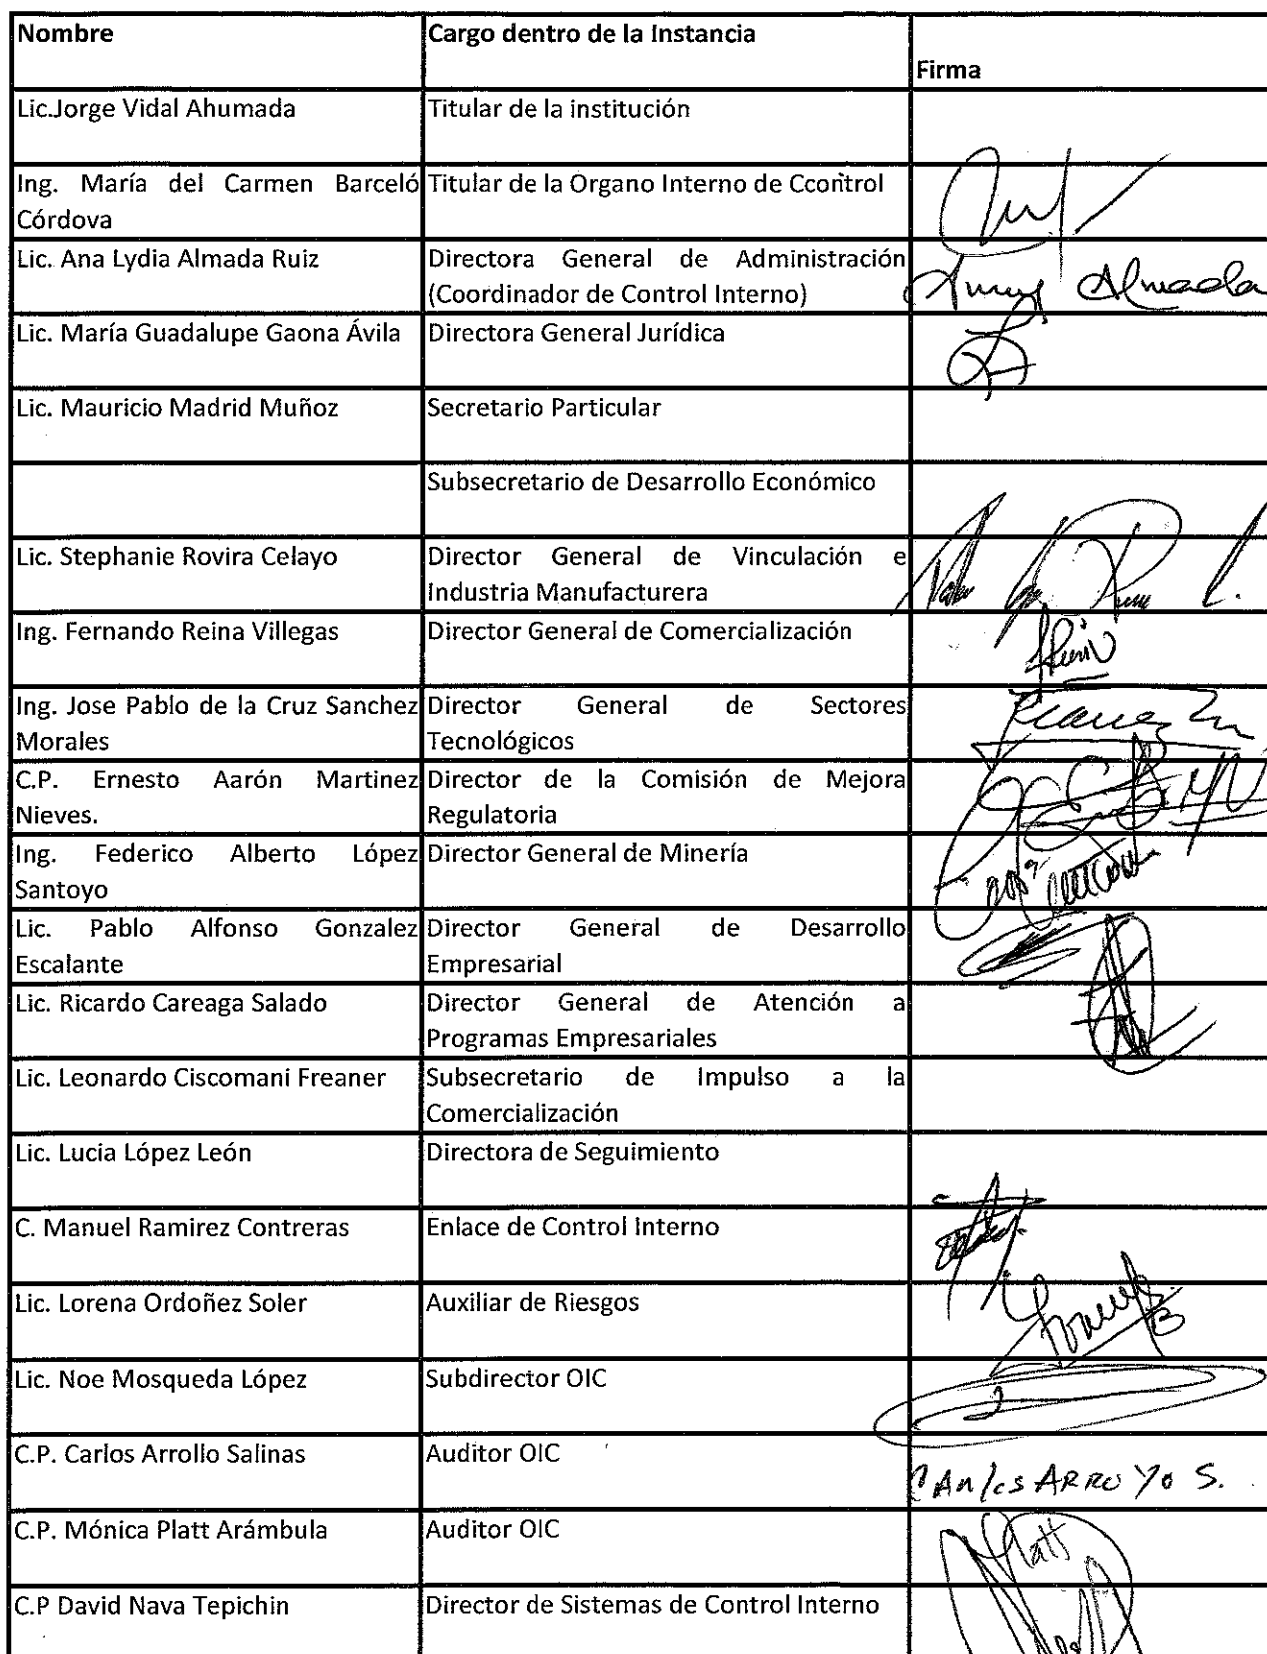 Nombre Cargo dentro de la Instancia
Firma
Lic.Jorge Vidal Ahumada Titular de la institución
Ing. María del Carmen Barceló Titular de la Organo Interno de Ccontrol
Córdova
Lic. Ana Lydia Almada Ruiz Directora General de Administración
(Coordinador de Control Interno)
Almada
Lic. María Guadalupe Gaona Ávila Directora General Jurídica
Lic. Mauricio Madrid Muñoz Secretario Particular
Subsecretario de Desarrollo Económico
Lic. Stephanie Rovira Celayo Director General de Vinculación e
Industria Manufacturera
Ing. Fernando Reina Villegas Director General de Comercialización
Ing. Jose Pablo de la Cruz Sanchez Director General de Sectores
Morales Tecnológicos
C.P. Ernesto Aarón Martinez Director de la Comisión de Mejora
Nieves. Regulatoria
Ing. Federico Alberto López Director General de Minería
Santoyo
Lic. Pablo Alfonso Gonzalez Director General de Desarrollo
Escalante Empresarial
Lic. Ricardo Careaga Salado Director General de Atención a
Programas Empresariales
Lic. Leonardo Ciscomani Freaner Subsecretario de Impulso a la
Comercialización
Lic. Lucia López León Directora de Seguimiento
C. Manuel Ramirez Contreras Enlace de Control Interno
Lic. Lorena Ordoñez Soler Auxiliar de Riesgos
Lic. Noe Mosqueda López Subdirector OIC
C.P. Carlos Arrollo Salinas Auditor OIC
CARlos ARROYO S.
C.P. Mónica Platt Arámbula Auditor OIC
Platt
C.P David Nava Tepichin Director de Sistemas de Control Interno